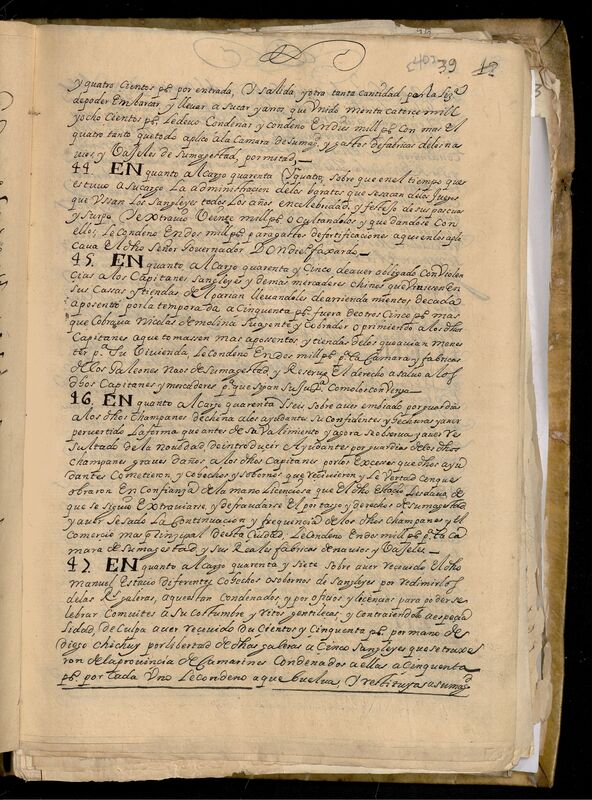 402 39 12
y quatro cientos ps por entrada, y salida y otra tanta cantidad por la liga
de poder embarcar, y lleuar a sucar y anos que vnido monta catorce mill
y ocho cientos ps le deuo condenar y condeno en dies mill ps con mas el
quatro tanto que todo aplico a la Camara de su magd, y gastos de fabricas de los na
uios, y Vajeles de su magestad, por mitad,
44. EN quanto al Cargo quarenta y quatro, sobre que en el tiempo que
estuuo a su cargo la administracion de los baratos que se sacan de los juegos
que Vssan los Sangleyes todos los años en celebridad, y festejo de sus pascuas
y
ellos, le condeno en dos mill ps para gastos de fortificaciones a quien los apli
caua el dho Señor Gouernador Don faxardo
45. EN quanto al Cargo quarenta y Cinco de auer obligado con Violen
cias a los Capitanes Sangleyes y demas mercaderes chinos que Viuiessen en
sus Cassas y tiendas del parian lleuandoles de arrendamientos de cada
aposento por la temporada a cinquenta ps fuera de otros cinco ps mas
que Cobraua Nicolas de molina su agente y Cobrador oprimiento a los dhos
Capitanes a que tomassen mas aposentos y tiendas de los que auian menes
ter pa Su Viuienda, le Condeno En dos mill ps pa la Camara y fabricas
de los galeones naos de su magestad, y Reseruo El derecho a saluo a los
dhos Capitanes y mercaderes pa que sigan su Justa Como les conuenga
46. EN quanto al Cargo quarenta y seis, sobre auer embiado por guardas
a los dhos champanes de china a los ayudantes su Confidentes y hechuras y auer
peruertido la forma que antes de su Valimiento y agora se obserua, y auer re
sultado de la nouedad de introducir Ayudantes por guardas de los dhos
champanes graues daños a los dhos Capitanes por los Excesos que dhos ayu
dantes Cometieron y Cohechos y sobornos que reciuieron y Se Vertad con que
obraron En Confianza de la mano Licenciosa que El dho de
que se siguio Extrauiarse y defraudarse El portazgo y derechos de su magestad
y auer sesado la Continuacion y frequencia de los dhos champanes y El
Comercio mas principal desta Ciudad, le Condeno En dos mill ps pa la Ca
mara de su magestad, y sus Reales fabricas de nauios, y Vajeles.
47. EN quanto al Cargo quarenta y Siete Sobre auer reciuido El dho
Manuel Estacio diferentes Cohechos o sobornos de sangleyes por redimirlos
de las Rs galeras, a que estan Condenados, y por oficios y licencias para poder se
lebrar Comuites a su costumbre y ritos gentilicos, y contraiendolo a especia
lidad, de Culpa auer reciuido du Cientos y Cinquenta ps por mano de
diego chichuy por libertad de dhas galeras a Cinco Sangleyes que se truxe
ron de la prouincia de Camarines Condenados a ellas a Cinquenta
ps por Cada Vno le condeno a que buelua, y restituya a su magd